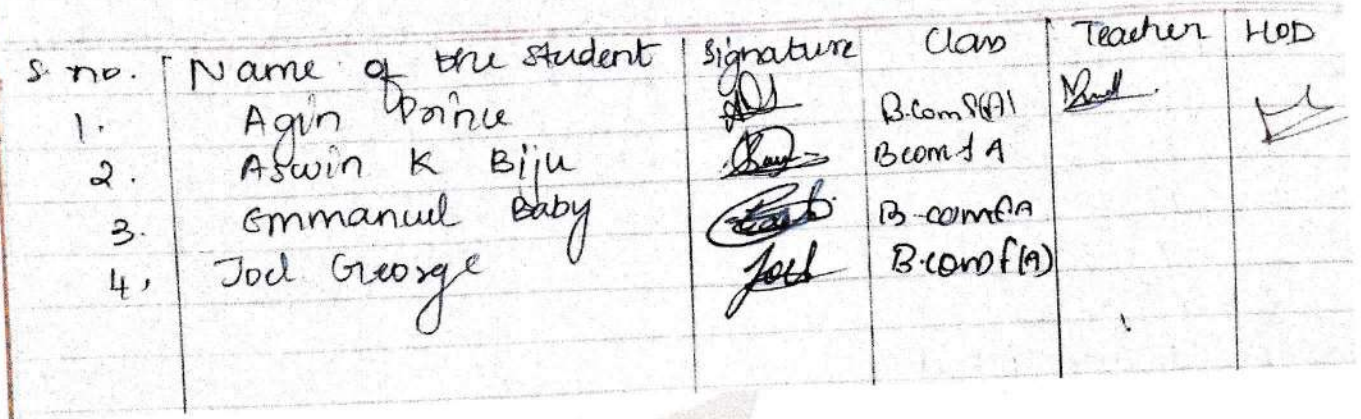 S. no. Name of the Student Signature Class Teacher HOD
1. Agin Prince B.com f(A)
2. Aswin K Biju Bcom f A
3. Emmanuel Baby B-com f A
4. Joel George Joel B.com f(A)